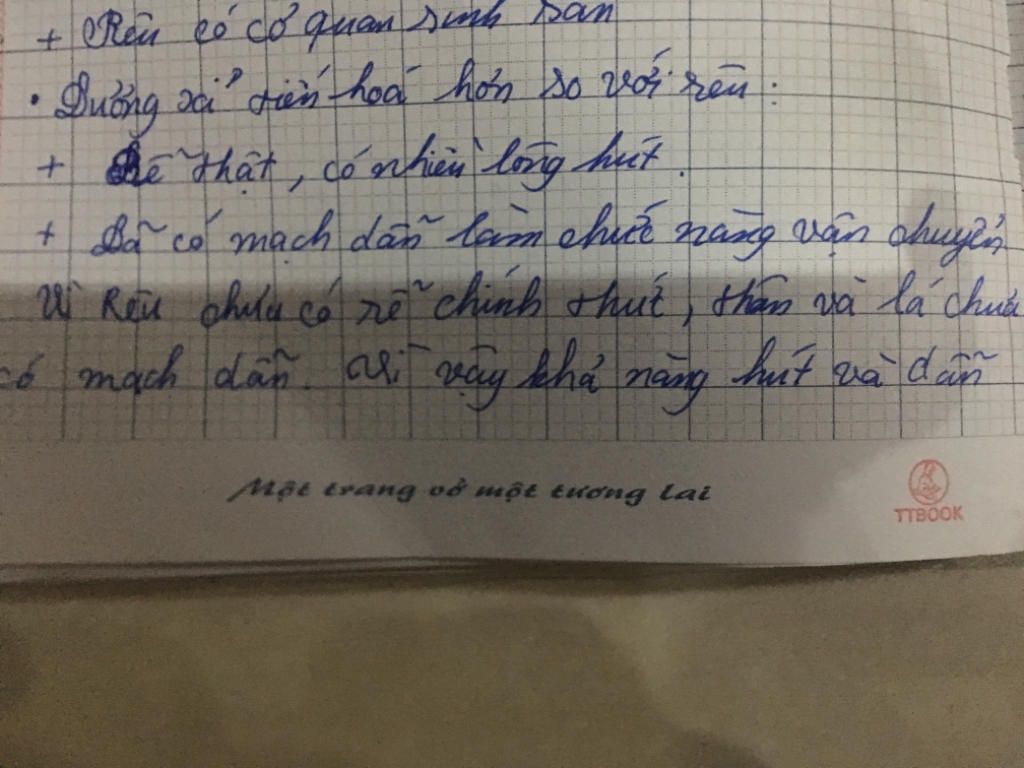 + Rêu có cơ quan sinh sản
• Dương xỉ tiến hoá hơn so với rêu:
+ Rễ thật, có nhiều lông hút.
+ Đã có mạch dẫn làm chức năng vận chuyển
Vì Rêu chưa có rễ chính thức, thân và lá chưa
có mạch dẫn. Vì vậy khả năng hút và dẫn
Một trang vở một tương lai
TTBOOK